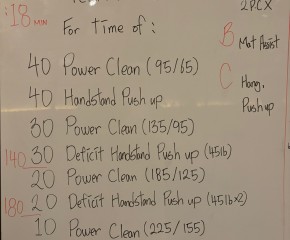 :18 MIN
For Time of :
40 Power Clean (95/65)
40 Handstand Push up
30 Power Clean (135/95)
140 30 Deficit Handstand Push up (45lb)
20 Power Clean (185/125)
180 20 Deficit Handstand Push up (45lbx2)
10 Power Clean (225/155)
2PCX
B Mat Assist
C Hang,
Push up